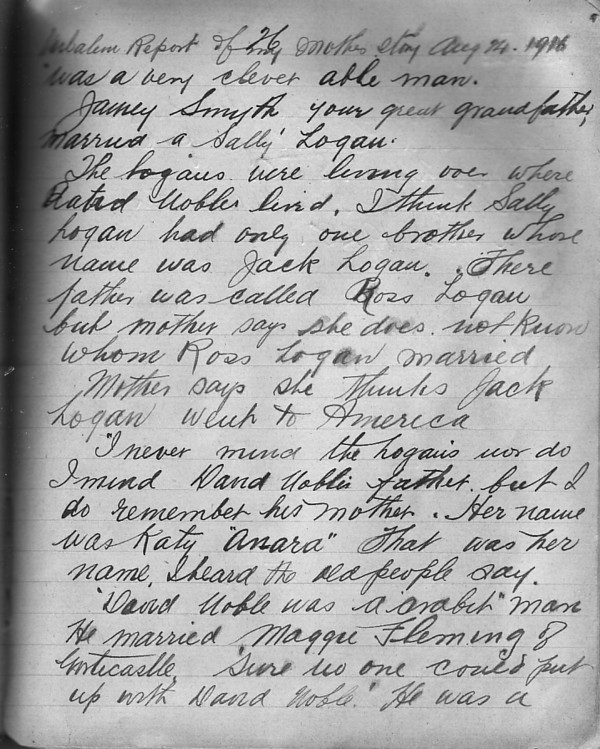 Verbatim Report of my Mothers story Aug 24. 1916
"was a very clever able man.
Jamey Smyth your great grandfather,
married a Sally Logan.
The Logans were living over where
David Nobles lived. I think Sally
Logan had only one brother whose
name was Jack Logan. There
father was called Ross Logan
but mother says she does not know
whom Ross Logan married
Mother says she thinks Jack
Logan went to America
"I never mind the Logans nor do
I mind David Nobles father but I
do remember his mother. Her name
was Katy "Anara" That was her
name, I heard the old people say.
"David Noble was a "crabit" man
He married Maggie Fleming of
Gorticastle. Sure no one could put
up with David Noble." He was a